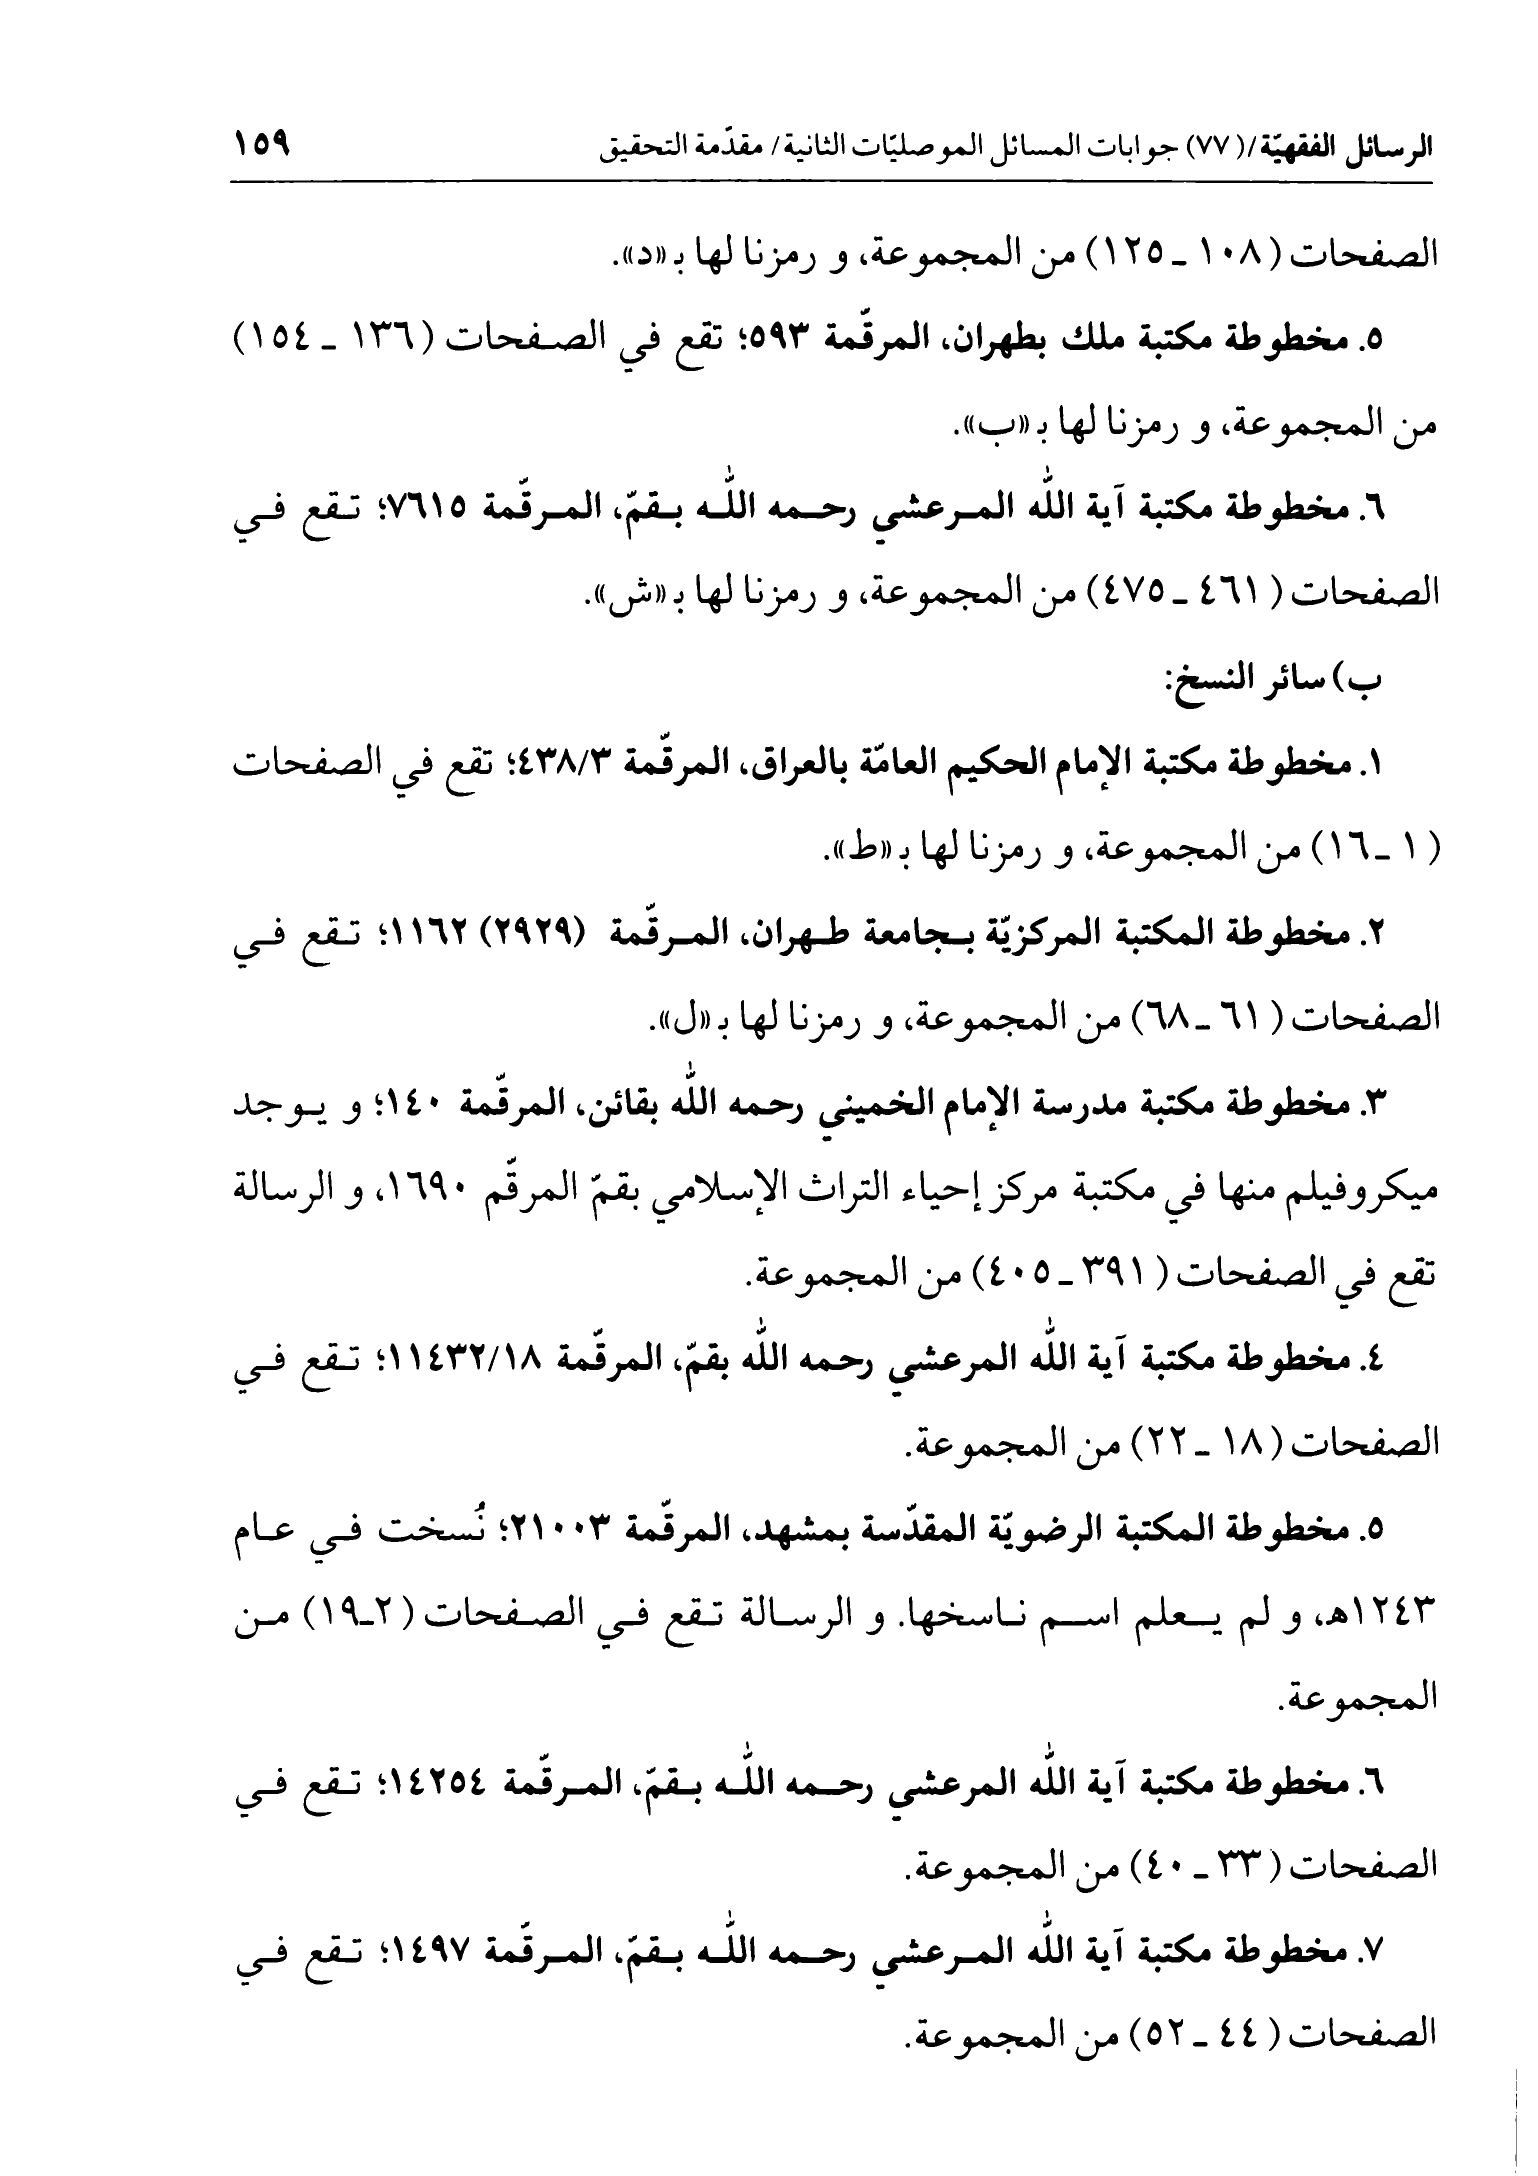 الرسائل الفقهيّة/(٧٧) جوابات المسائل الموصليّات الثانية/ مقدّمة التحقيق ١٥٩
الصفحات (١٠٨ ـ ١٢٥) من المجموعة، و رمزنا لها بـ«د».
٥. مخطوطة مكتبة ملك بطهران، المرقّمة ٥٩٣؛ تقع في الصفحات (١٣٦ ـ ١٥٤)
من المجموعة، و رمزنا لها بـ«ب».
٦. مخطوطة مكتبة آية اللّٰه المرعشي رحمه اللّٰه بقمّ، المرقّمة ٧٦١٥؛ تقع في
الصفحات (٤٦١ ـ ٤٧٥) من المجموعة، و رمزنا لها بـ«ش».
ب) سائر النسخ:
١. مخطوطة مكتبة الإمام الحكيم العامّة بالعراق، المرقّمة ٤٣٨/٣؛ تقع في الصفحات
(١ ـ ١٦) من المجموعة، و رمزنا لها بـ«ط».
٢. مخطوطة المكتبة المركزيّة بجامعة طهران، المرقّمة (٢٩٢٩) ١١٦٢؛ تقع في
الصفحات (٦١ ـ ٦٨) من المجموعة، و رمزنا لها بـ«ل».
٣. مخطوطة مكتبة مدرسة الإمام الخميني رحمه اللّٰه بقائن، المرقّمة ١٤٠؛ و يوجد
ميكروفيلم منها في مكتبة مركز إحياء التراث الإسلامي بقمّ المرقّم ١٦٩٠، و الرسالة
تقع في الصفحات (٣٩١ ـ ٤٠٥) من المجموعة.
٤. مخطوطة مكتبة آية اللّٰه المرعشي رحمه اللّٰه بقمّ، المرقّمة ١١٤٣٢/١٨؛ تقع في
الصفحات (١٨ ـ ٢٢) من المجموعة.
٥. مخطوطة المكتبة الرضويّة المقدّسة بمشهد، المرقّمة ٢١٠٠٣؛ نُسخت في عام
١٢٤٣هـ، و لم يعلم اسم ناسخها. و الرسالة تقع في الصفحات (٢ـ١٩) من
المجموعة.
٦. مخطوطة مكتبة آية اللّٰه المرعشي رحمه اللّٰه بقمّ، المرقّمة ١٤٢٥٤؛ تقع في
الصفحات (٣٣ ـ ٤٠) من المجموعة.
٧. مخطوطة مكتبة آية اللّٰه المرعشي رحمه اللّٰه بقمّ، المرقّمة ١٤٩٧؛ تقع في
الصفحات (٤٤ ـ ٥٢) من المجموعة.